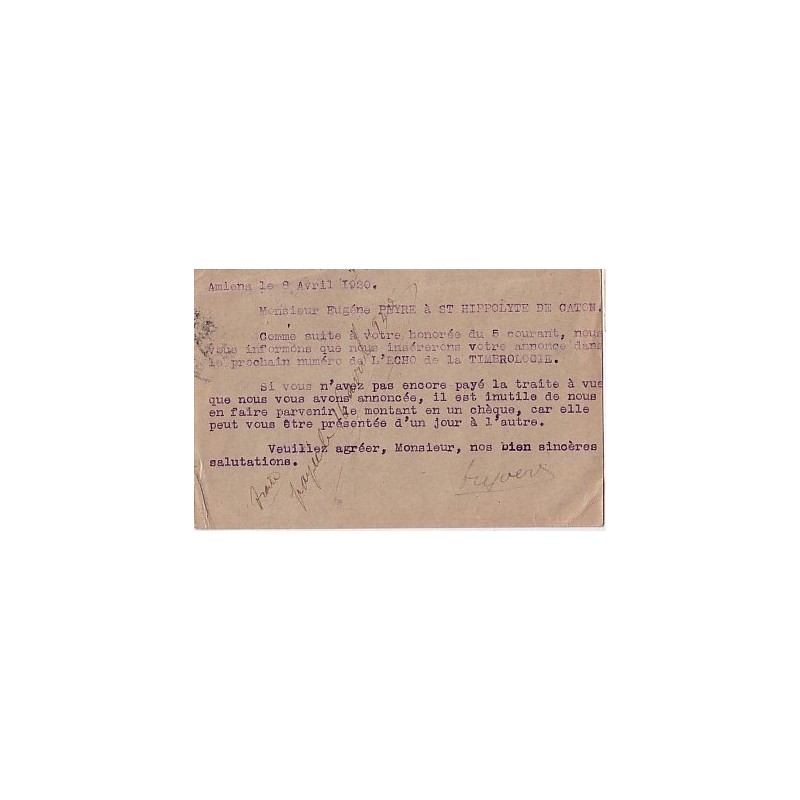 Amiens le 8 Avril 1920.
Monsieur Eugéne PEYRE à ST HIPPOLYTE DE CATON.
Comme suite à votre honorée du 5 courant, nous
vous informons que nous insérerons votre annonce dans
le prochain numéro de L'ECHO de la TIMBROLOGIE.
Si vous n'avez pas encore payé la traite à vue
que nous vous avons annoncée, il est inutile de nous
en faire parvenir le montant en un chèque, car elle
peut vous être présentée d'un jour à l'autre.
Veuillez agréer, Monsieur, nos bien sincères
salutations.